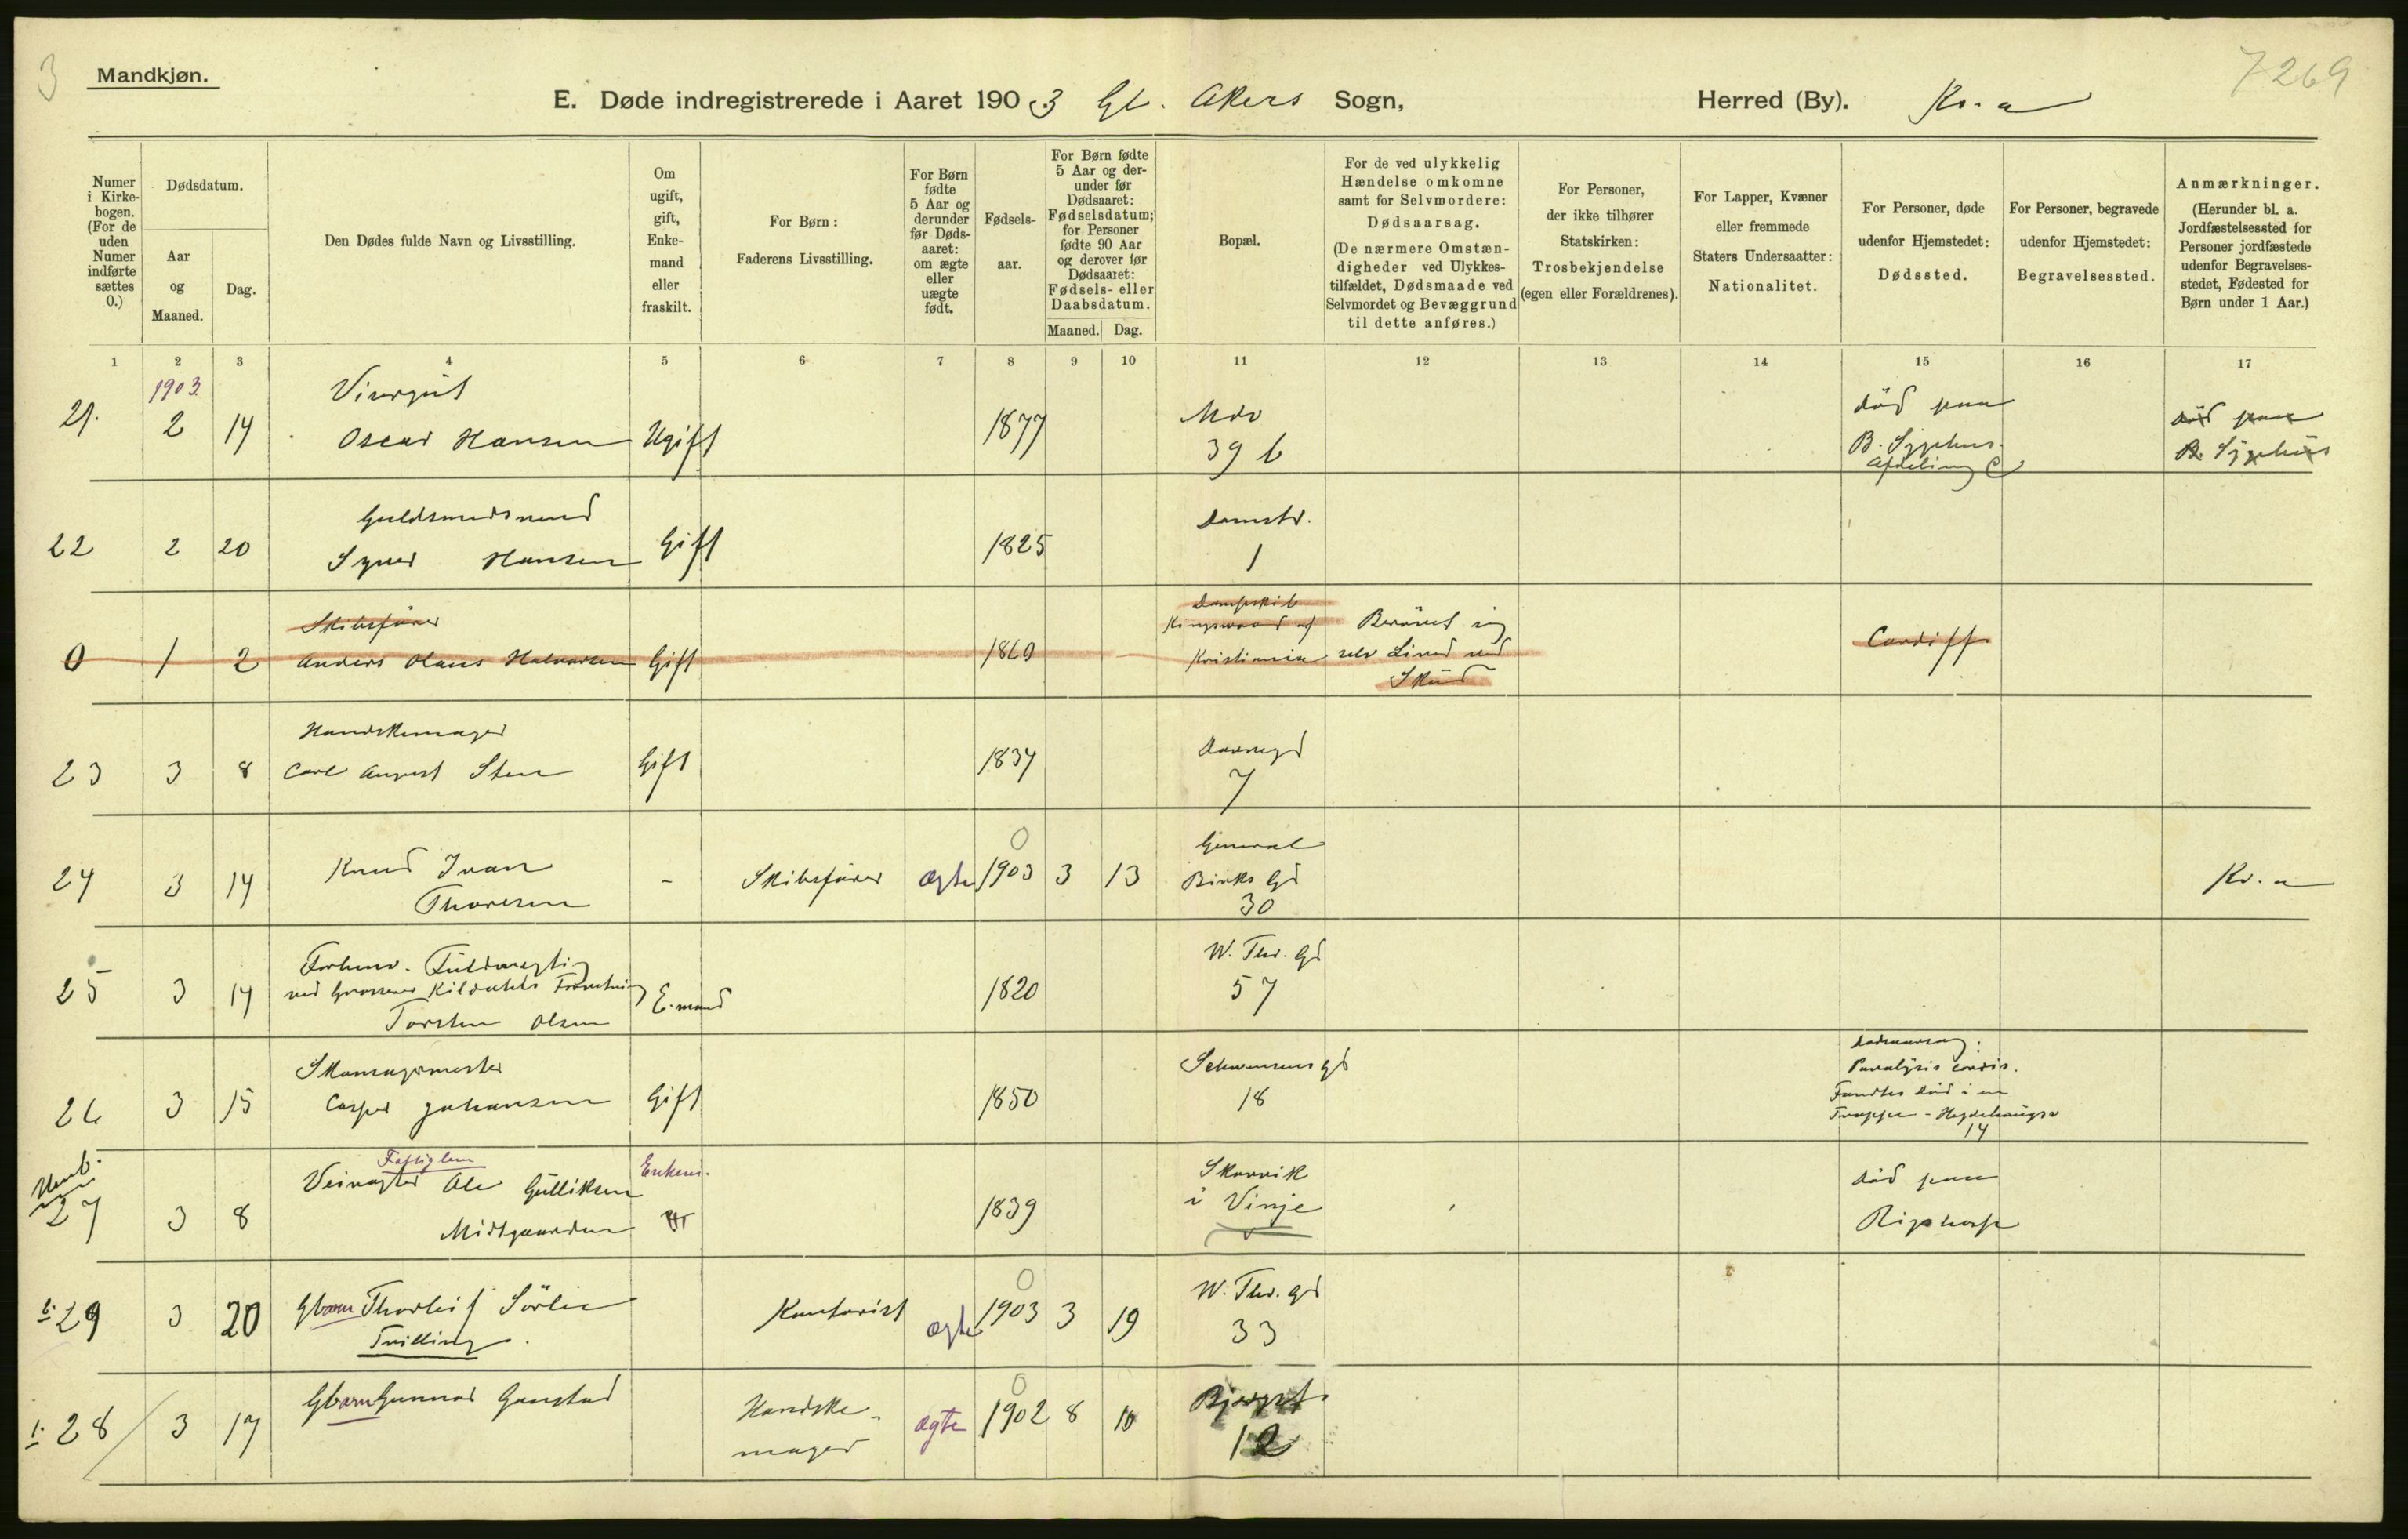 3
Mandkjøn.
7269
E. Døde indregistrerede i Aaret 1903 Gl. Akers Sogn, Herred (By). Kr.a
Numer i Kirkebogen. (For de uden Numer indførte sættes 0.)
Dødsdatum.
Aar og Maaned.
Dag.
Den Dødes fulde Navn og Livsstilling.
Om ugift, gift, Enkemand eller fraskilt.
For Børn: Faderens Livsstilling.
For Børn fødte 5 Aar og derunder før Dødsaaret: om ægte eller uægte født.
Fødselsaar.
For Børn fødte 5 Aar og derunder før Dødsaaret: Fødselsdatum; for Personer fødte 90 Aar og derover før Dødsaaret: Fødsels- eller Daabsdatum.
Maaned. Dag.
Bopæl.
For de ved ulykkelig Hændelse omkomne samt for Selvmordere: Dødsaarsag. (De nærmere Omstændigheder ved Ulykkestilfældet, Dødsmaade ved Selvmordet og Bevæggrund til dette anføres.)
For Personer, der ikke tilhører Statskirken: Trosbekjendelse (egen eller Forældrenes).
For Lapper, Kvæner eller fremmede Staters Undersaatter: Nationalitet.
For Personer, døde udenfor Hjemstedet: Dødssted.
For Personer, begravede udenfor Hjemstedet: Begravelsessted.
Anmærkninger. (Herunder bl. a. Jordfæstelsessted for Personer jordfæstede udenfor Begravelsesstedet, Fødested for Børn under 1 Aar.)
1 2 3 4 5 6 7 8 9 10 11 12 13 14 15 16 17
1903.
21. 2 14 Visergut
Oscar Hansen Ugift 1877 Mdv
39 b
død paa
B. Sygehus.
Afdeling C
død paa
B. Sygehus
22 2 20 Guldsmedsvend
Syver Hansen Gift 1825 Damstr.
1
0 1 2 Skibsfører
Anders Olaus Halvorsen Gift 1860 Dampskib
Kingswood af
Kristiania
Berövet sig
selv Livet ved
Skud
Cardiff
23 3 8 Handskemager
Carl August Sten Gift 1837
7
24 3 14 Knud Ivar
Thoresen - Skibsfører ægte 0 1903 3 13 General
Birks Gd
30
Kr.a
25 3 14 Forhenv. Fuldmægtig
ved Grosserer Kildahls Forretning
Torsten Olsen E.mand 1820 W. Thr. Gd
57
26 3 15 Skomagermester
Casper Johansen Gift 1850 Schwensens gd
18
Dødsaarsag:
Paralysis cordis.
Fandtes död i en
Trappe - Hegdehaugsv
14
27 3 8 Fattiglem
Veivogter Ole Gulliksen
Midtgaarden Enkem. 1839 Skarvik
i Vinje
död paa
Rigshosp
2. 29 3 20 Gbarn Thorleif Sörlie
Tvilling. Kontorist ægte 0 1903 3 19 W. Thr. gd
33
1. 28 3 17 Gbarn Gunnar Ganstad Handske-
mager ægte 0 1902 8 10
12